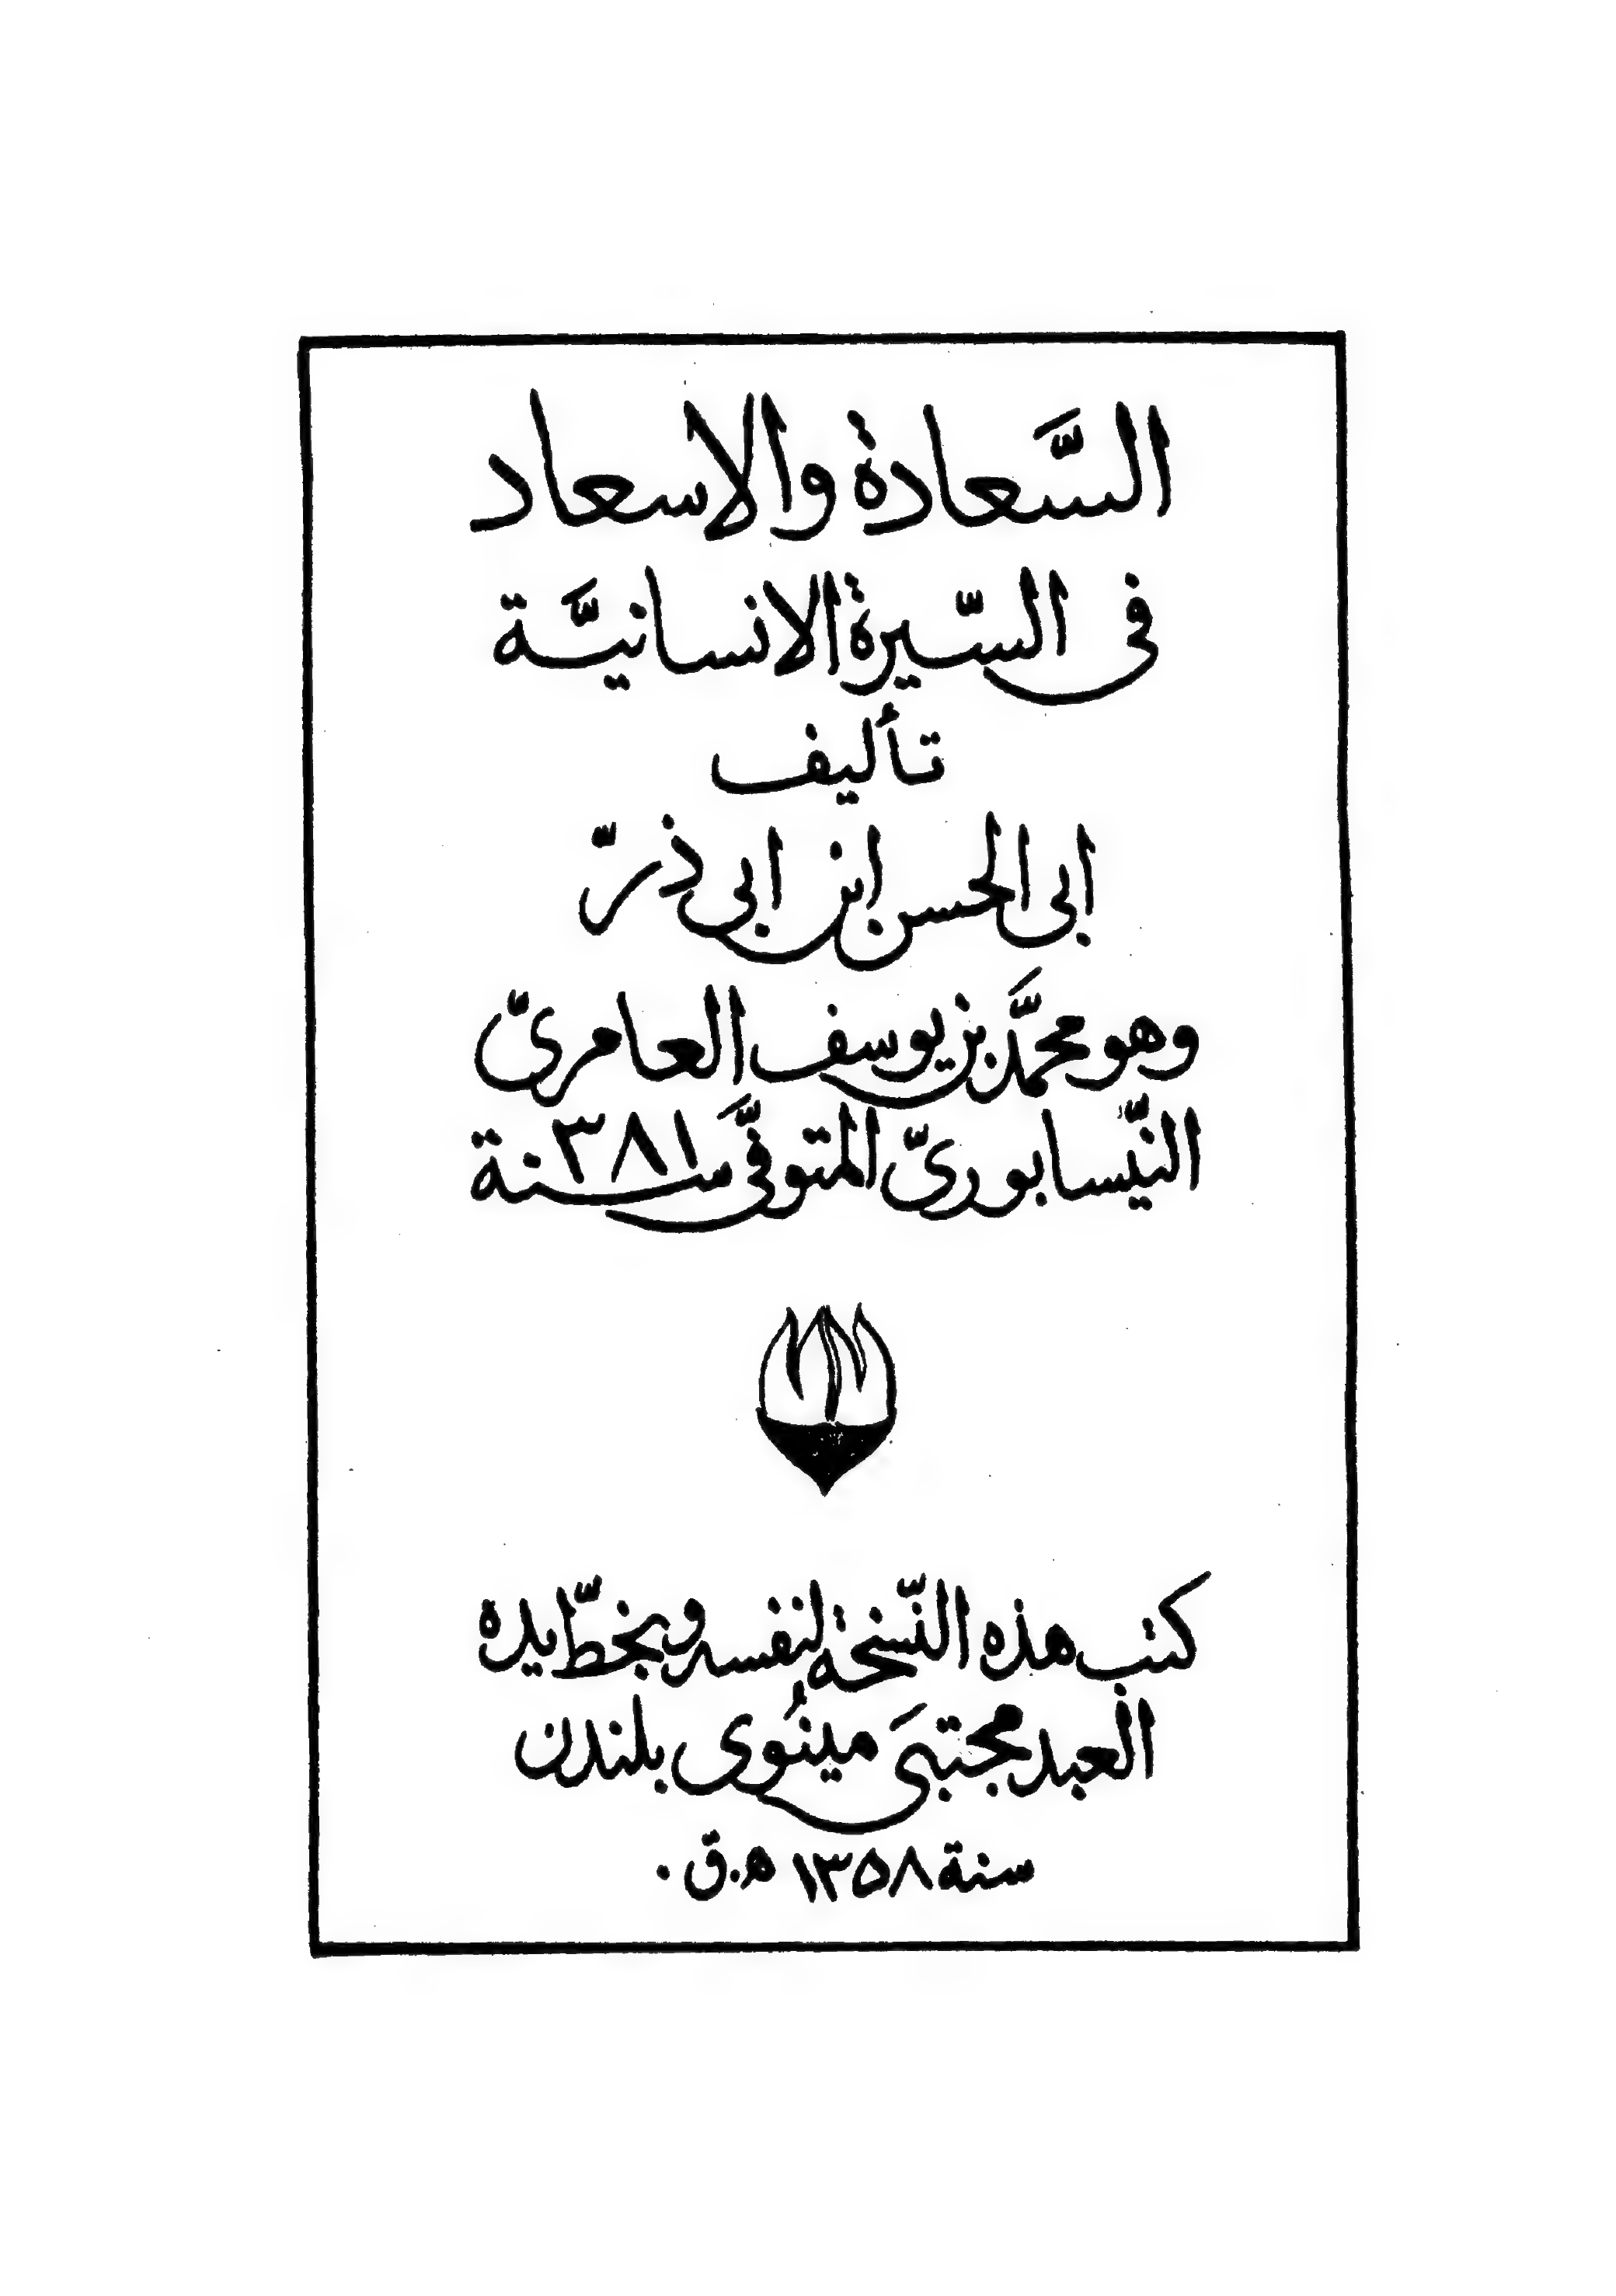 السَّعادة والاسعاد
فى السّيرة الانسانيَّة
تأليف
ابى الحسن ابن ابى ذرّ
وهو محمَّد بن يوسف العامرىّ
النّيسابورىّ المتوفَّى سنة ٣٨١
كتب هذه النّسخة لنفسه وبخطّ يده
العبد مجتبَى مينُوى بلندن
سنة ١٣٥٨ ه.ق.